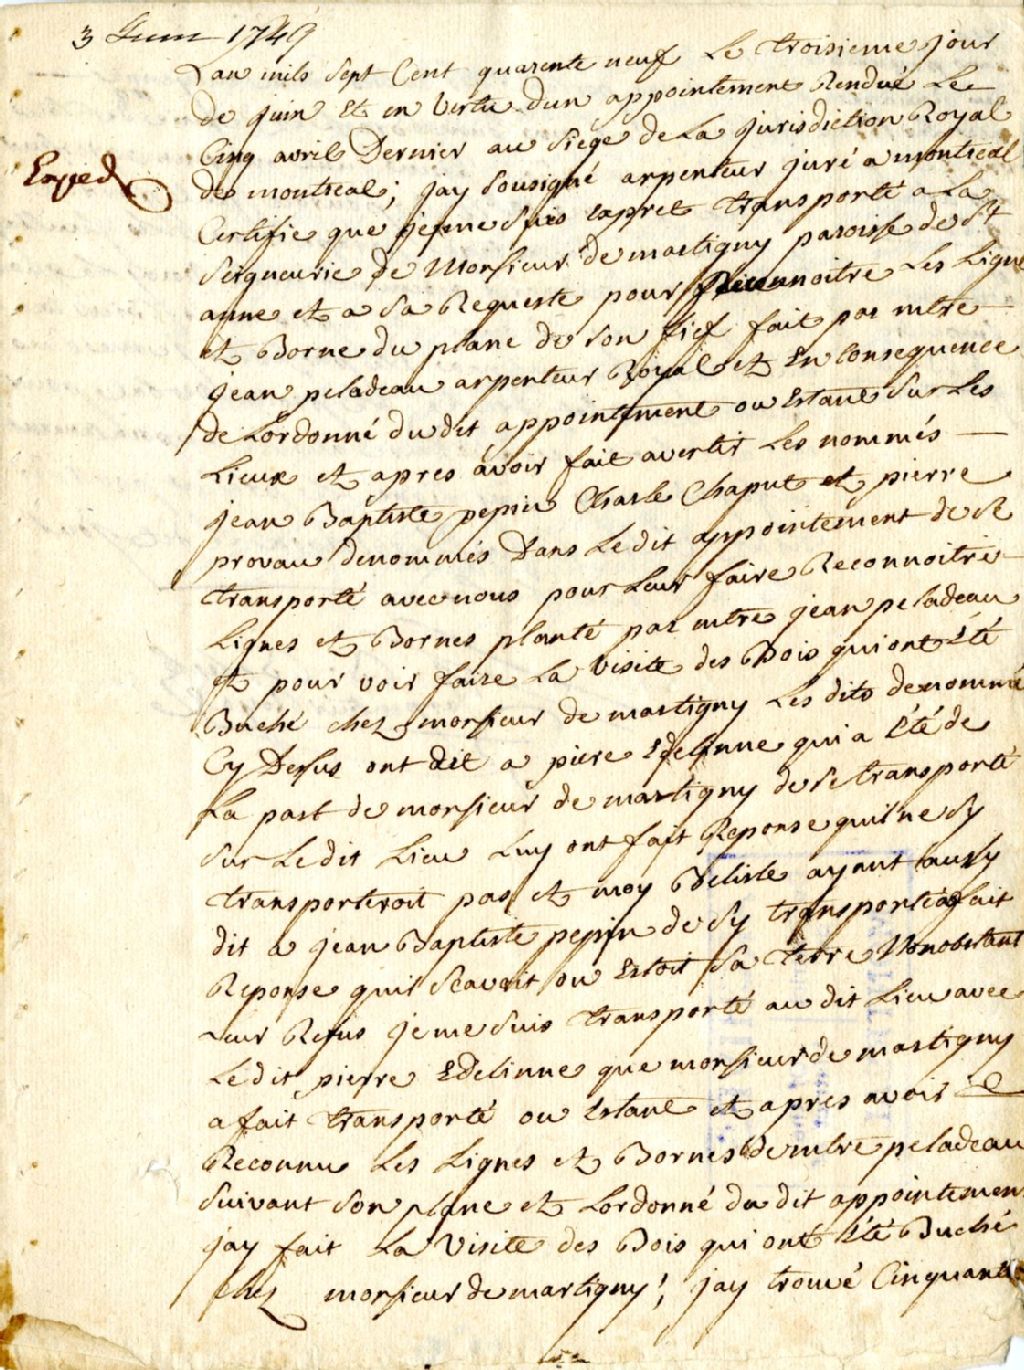 3 Juin 1749
Lan mils sept Cent quarente neuf Le troisieme jour
de juin Et en Vertu dun appointement Rendue Le
Cinq avril Dernier au Siege de La jurisdiction Royal
de montreal; jay Sousigné arpenteur juré a montreal
Certifie que je me suis Expret transporté a La
Seigneurie de Monsieur de martigny paroisse de St
anne et a Sa Requeste pour Reconnoitre Les Ligne
et Borne du plane de Son fief fait par mtre
jean peladeau arpenteur Royal et En Consequence
de Lordonné du dit appointement ou Estant Sur Les
Lieux et apres avoir fait avertir Les nommés
jean Baptiste pepin Charle Chaput et pierre
provau denommés Dans Ledit appointement de Se
transporté avec nous pour Leur faire Reconnoitre
Lignes et Bornes planté par mtre jean peladeau
et pour voir faire La Visite des Bois qui ont Eté
Buché chez monsieur de martigny Les dits denommé
Cy Desus ont dit a piere Edelinne qui a Eté de
La part de monsieur de martigny de Se transporté
Sur Ledit Lieu Luy ont fait Reponse quil ne Sy
transporteroit pas et moy Delisle ayant aussy
dit a jean Baptiste pepin de Sy transporté a fait
Reponse quil Scavoit ou Estoit Sa Terre Nonobstant
Leur Refus je me Suis transporté au dit Lieu avec
Ledit pierre Edelinne que monsieur de martigny
a fait transporté ou Estant et apres avoir
Reconnu Les Lignes et Bornes de mtre peladeau
Suivant Son plane et Lordonné du dit appointemen
jay fait La Visite des Bois qui ont Eté Buché
chez monsieur de martigny; jay trouvé Cinquante